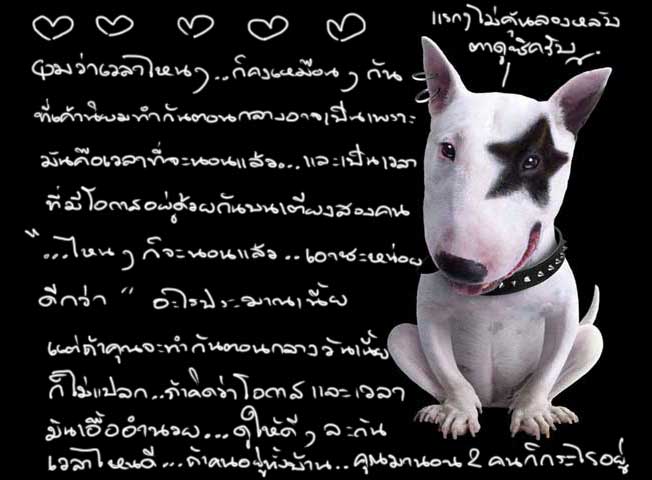 แรกๆไม่คุ้นลองหลับ
ตาดูซิครับ..
ผมว่าเวลาไหนๆ..ก็คงเหมือนๆกัน
ที่เค้านิยมทำกันตอนกลางอาจเป็นเพราะ
มันคือเวลาที่จะนอนแล้ว...และเป็นเวลา
ที่มีโอกาสอยู่ด้วยกันบนเตียงสองคน
"...ไหนๆก็จะนอนแล้ว..เอาซะหน่อย
ดีกว่า" อะไรประมาณเนี้ย
แต่ถ้าคุณจะทำกันตอนกลางวันเนี้ย
ก็ไม่แปลก..ถ้าคิดว่าโอกาส และเวลา
มันเอื้ออำนวย...ดูให้ดีๆละกัน
เวลาไหนดี...ถ้าคนอยู่ทั้งบ้าน..คุณมานอน2คนก็กระไรอยู่